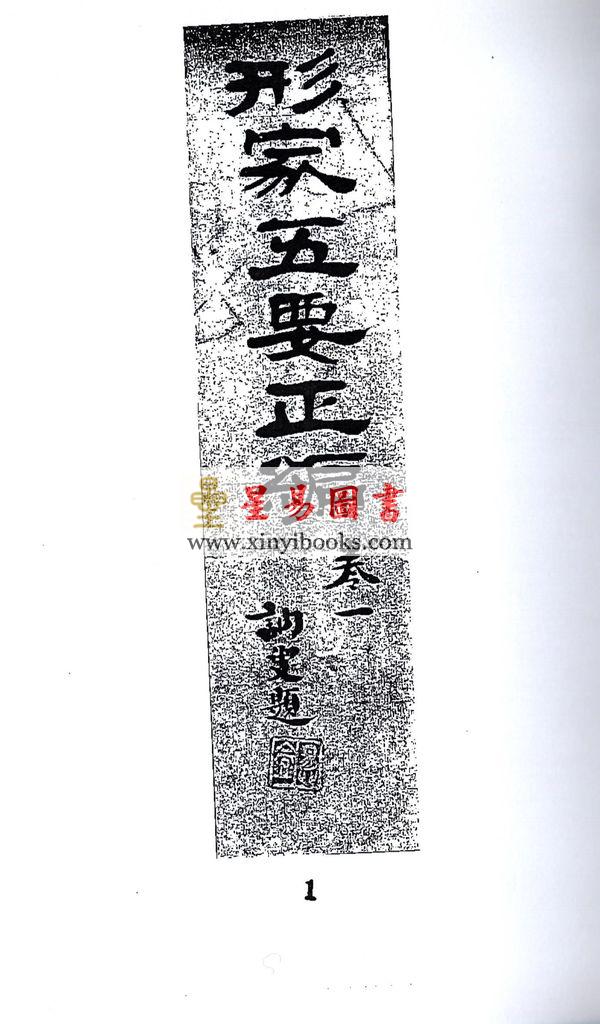 形家五要正編
卷一
訒叟題
星易圖書
www.xinyibooks.com
1